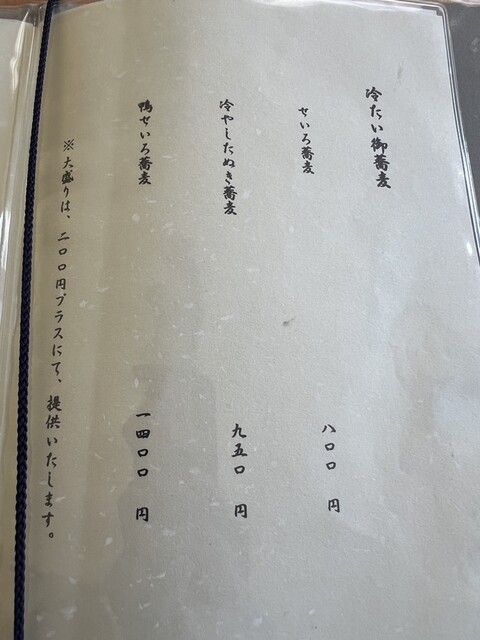 冷たい御蕎麦
せいろ蕎麦 八〇〇 円
冷やしたぬき蕎麦 九五〇 円
鴨せいろ蕎麦 一四〇〇 円
※大盛りは、二〇〇円プラスにて、提供いたします。